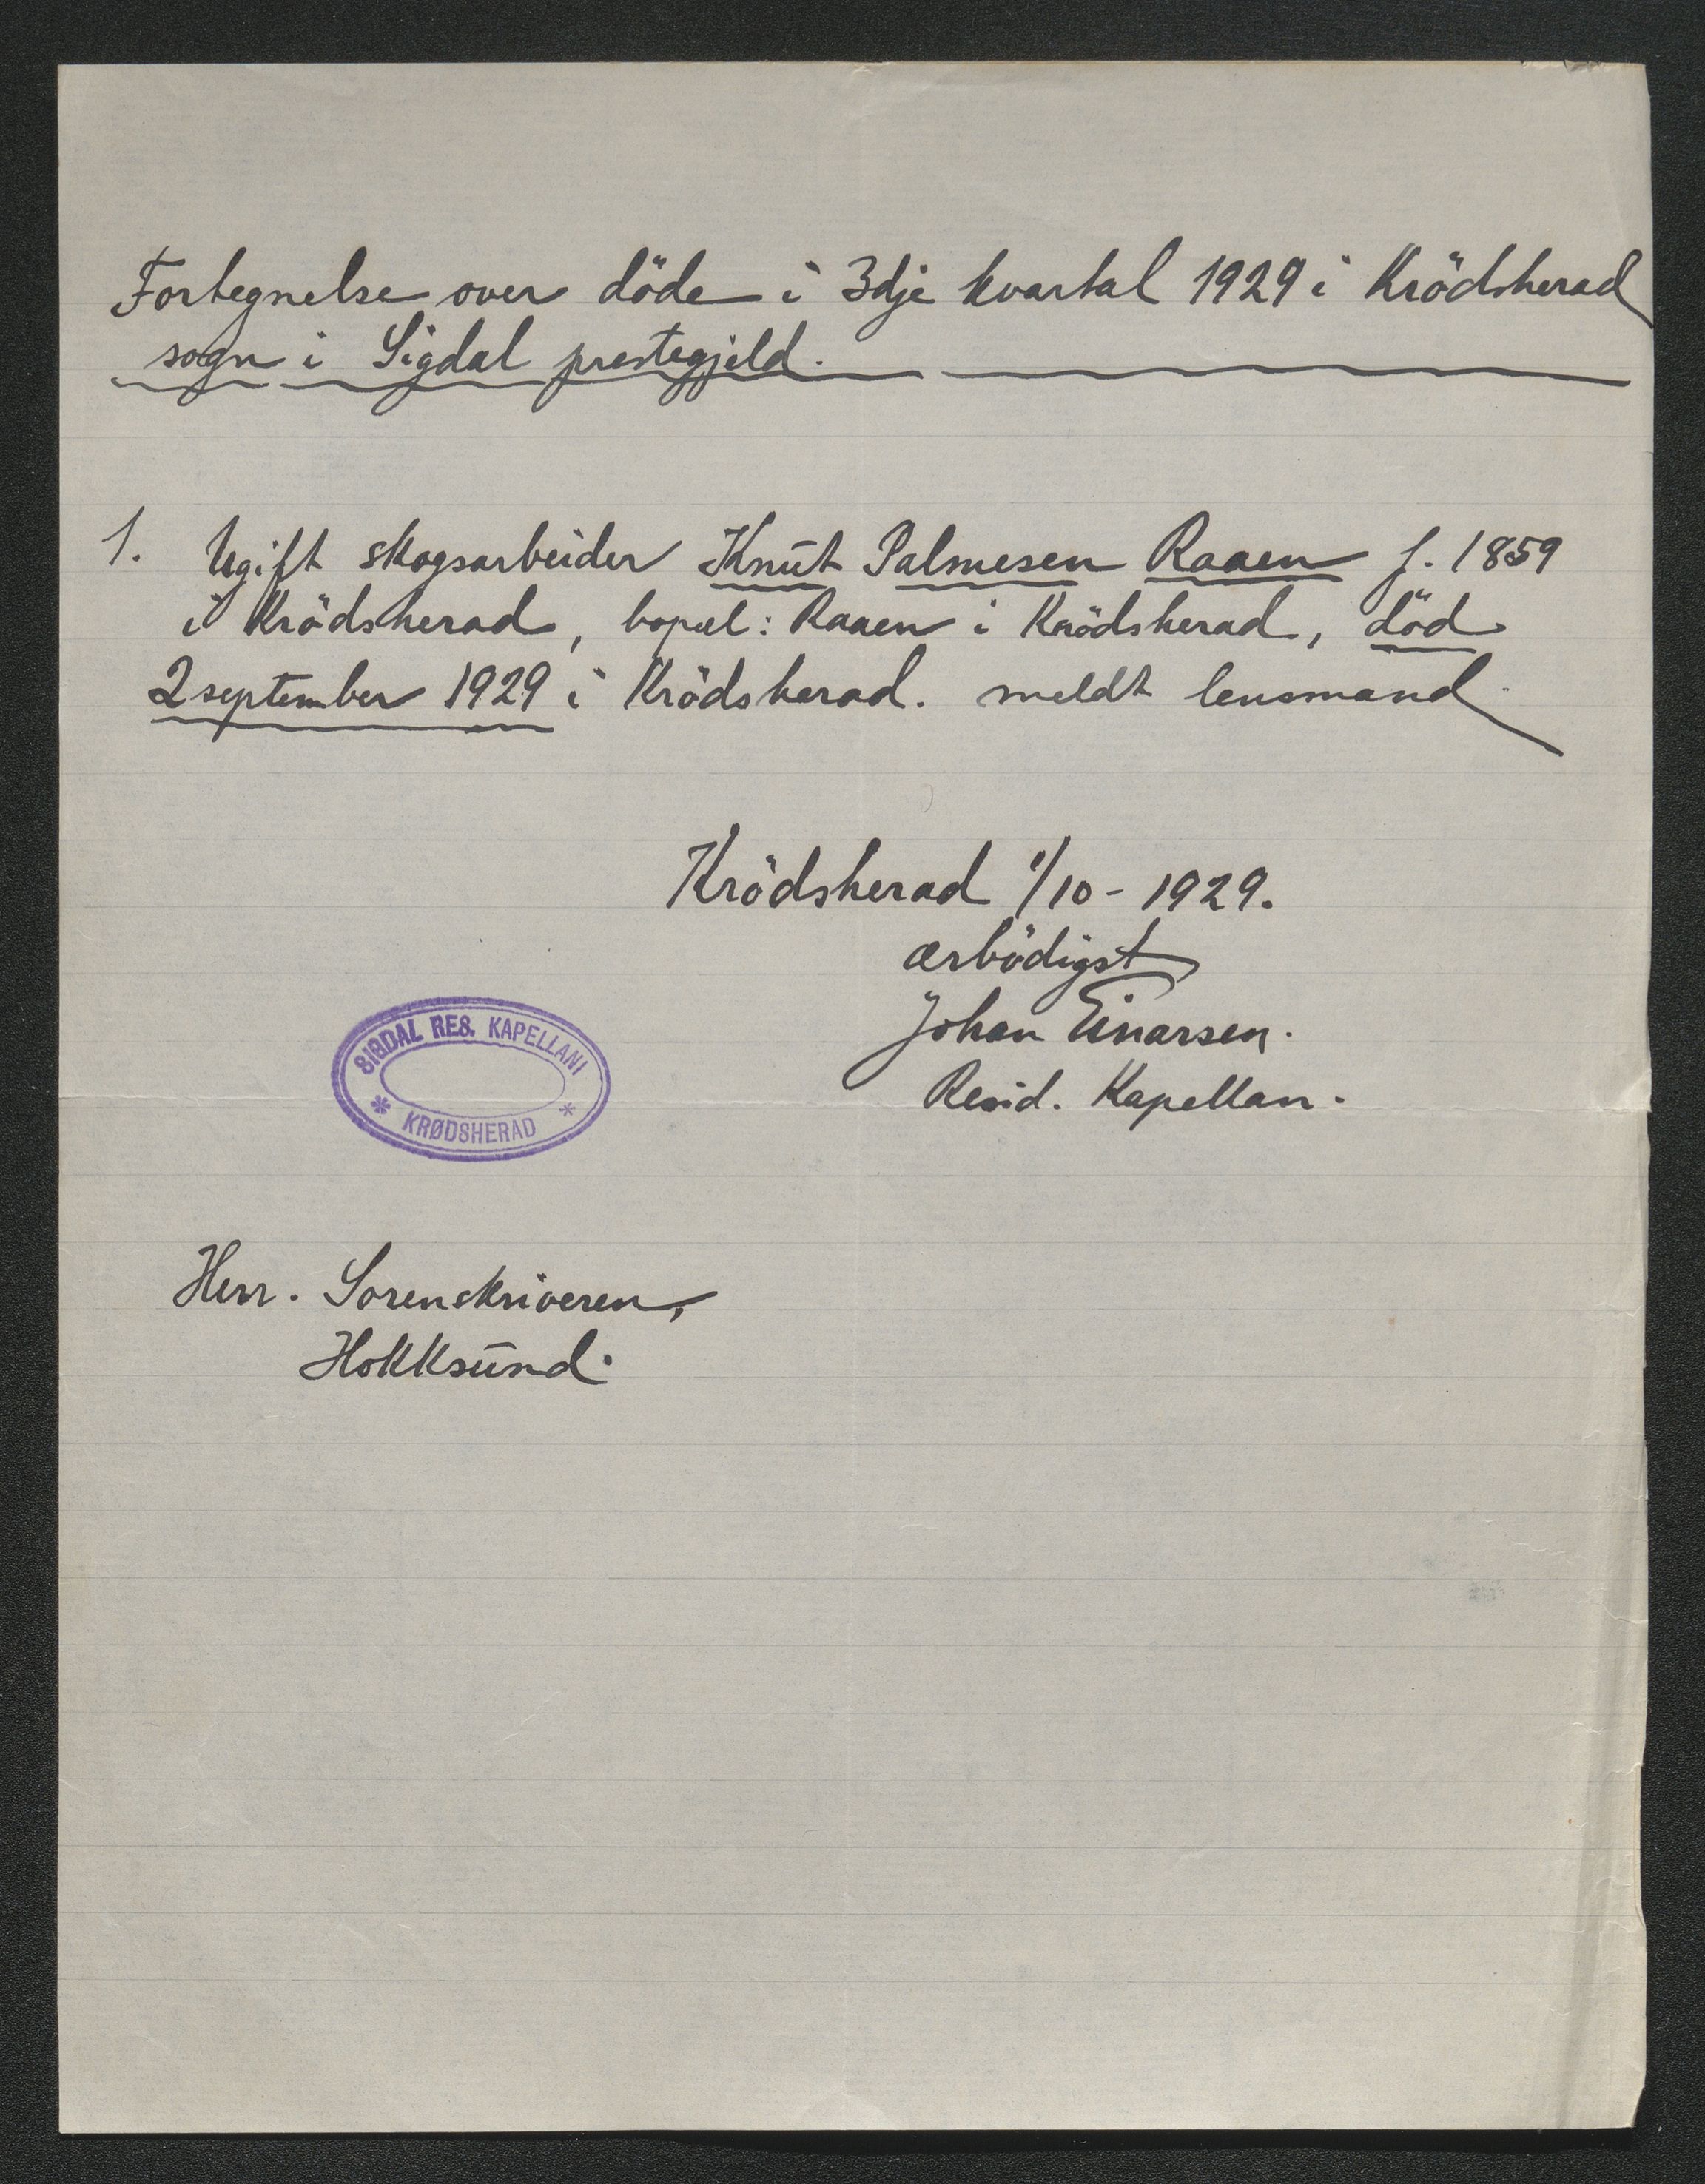 Fortegnelse over döde i 3dje kvartal 1929 i Krödsherad
sogn i Sigdal prestegjeld.
1. Ugift skogsarbeider Knut Palmesen Raaen f. 1859
i Krödsherad, bopæl: Raaen i Krödsherad, död
2 september 1929 i Krödsherad. meldt lensmand
Krödsherad 1/10 - 1929.
ærbödigst
Johan Einarsen.
Resid. Kapellan.
SIGDAL RES. KAPELLANI
* KRØDSHERAD *
Herr. Sorenskriveren,
Hokksund.